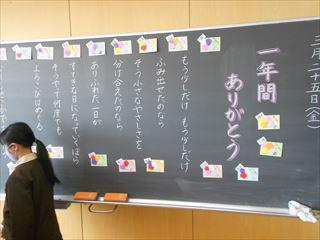 三月二十五日(金)
一年間
ありがとう
もう少しだけ もう少しだけ
ふみ出せたのなら
そう小さなやさしさを
分け合えたのなら
ありふれた一日が
すてきな日になっていくほら
そうやって何度でも
よろこびはめぐる